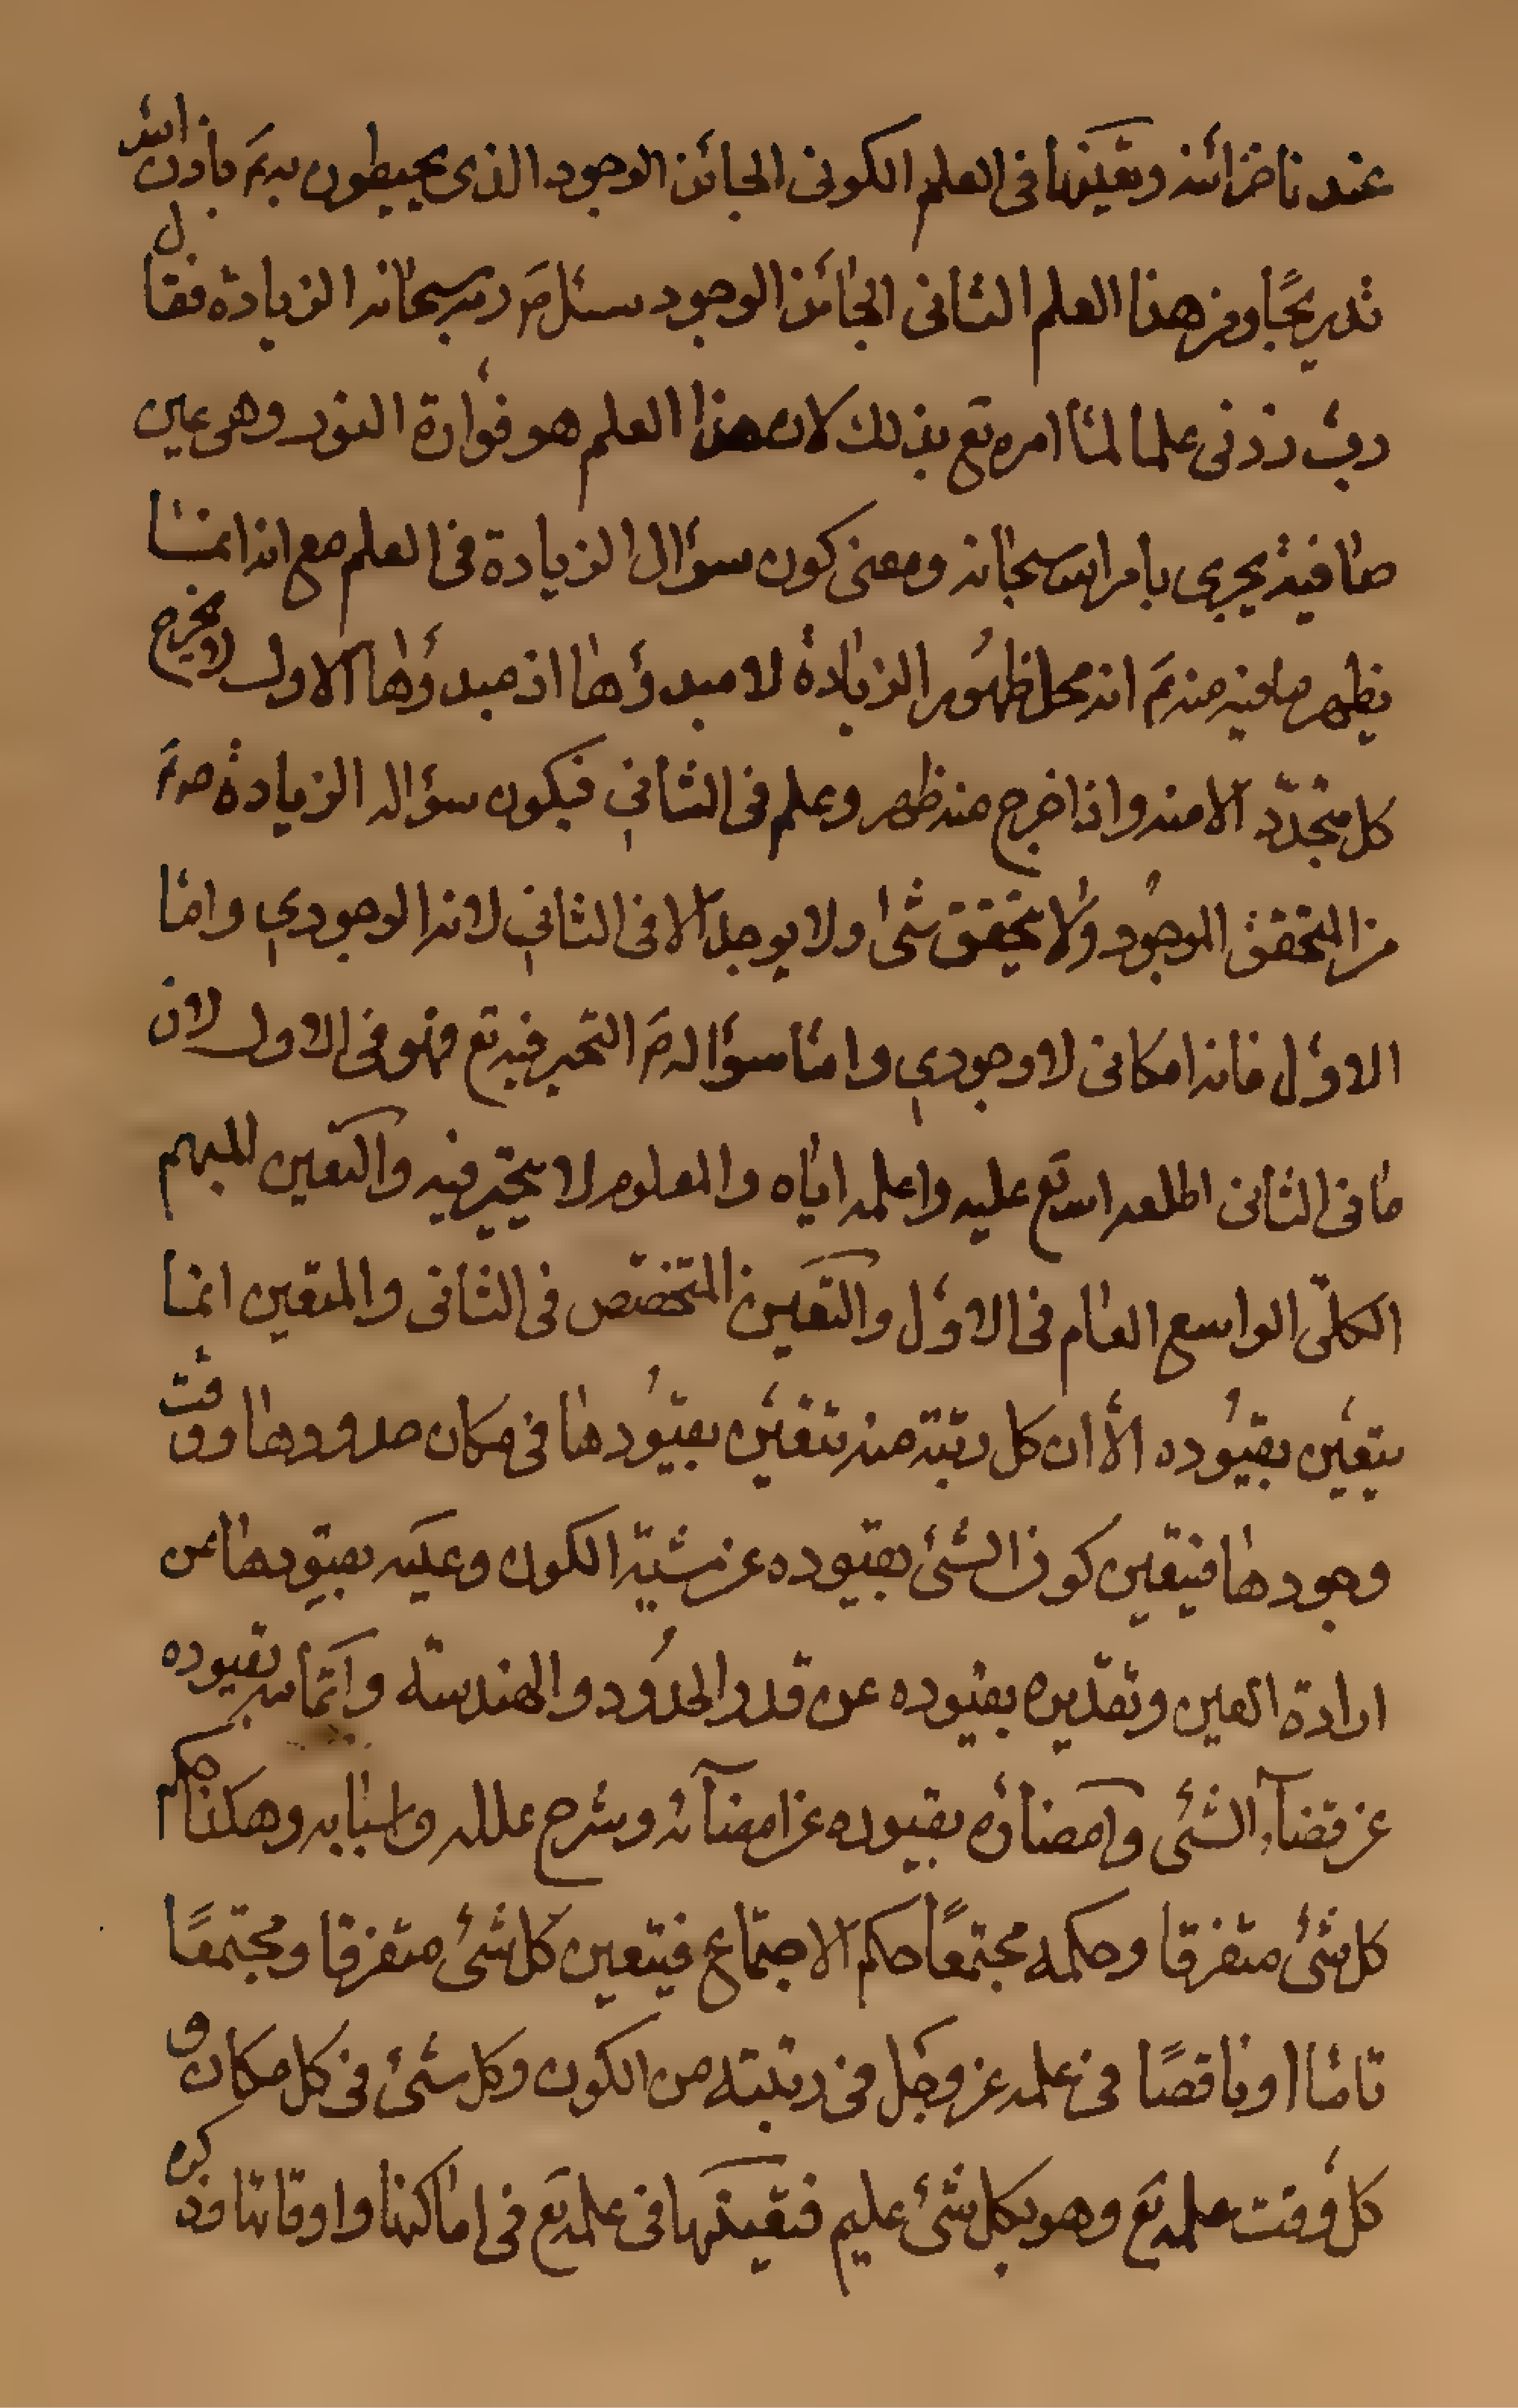 عندنا خزائنه وتعينها فى العلم الكونى الجائز الوجود الذى يحيطون به ثم باذن الله
تدريجًا ومن هذا العلم الثانى الجائز الوجود سئل ص ربه سبحانه الزيادة فقال
رب زدنى علما لما امره تع بذلك لان هذا العلم هو فوارة النور وهى عين
صافية يجرى بامر الله سبحانه ومعنى كون سؤال الزيادة فى العلم مع انه انما
يظهر ما فيه منه ثم انه محل ظهور الزيادة لا مبدؤها اذ مبدؤها الاول لا يخرج
كل متجدّد الا منه واذا خرج منه ظهر وعلم فى الثانى فيكون سؤاله الزيادة ص
من المتحقق الموجود ولا يتحقق شئ ولا يوجد الا فى الثانى لانه الوجودي واما
الاول فانه امكانى لا وجودي واما سؤاله ص التحير فيه تع فهو فى الاول لان
ما فى الثانى اطلعه الله تع عليه واعلمه اياه والمعلوم لا يتحير فيه والتعين المبهم
الكلىّ الواسع العام فى الاول والتعين المتخصّص فى الثانى والمتعين انما
يتعين بقيوده الا ان كل رتبة منه تتعين بقيودها فى مكان حدودها ووقت
وجودها فيتعين كون الشئ بقيوده عن مشية الكون وعينه بقيودها عن
ارادة العين وتقديره بقيوده عن قدر الحدود والهندسة واتمامه بقيوده
عن قضآء الشئ وامضاؤه بقيوده عن امضآئه وشرح علله واسبابه وهكذا حكم
كل شئ متفرقا وحكمه مجتمعًا حكم الاجتماع فيتعين كل شئ متفرقا ومجتمعًا
تاما او ناقصًا فى علمه عز وجل فى رتبته من الكون وكل شئ فى كل مكان و
كل وقت علمه تع وهو بكل شئ عليم فتعينها فى علمه تع فى اماكنها واوقاتها